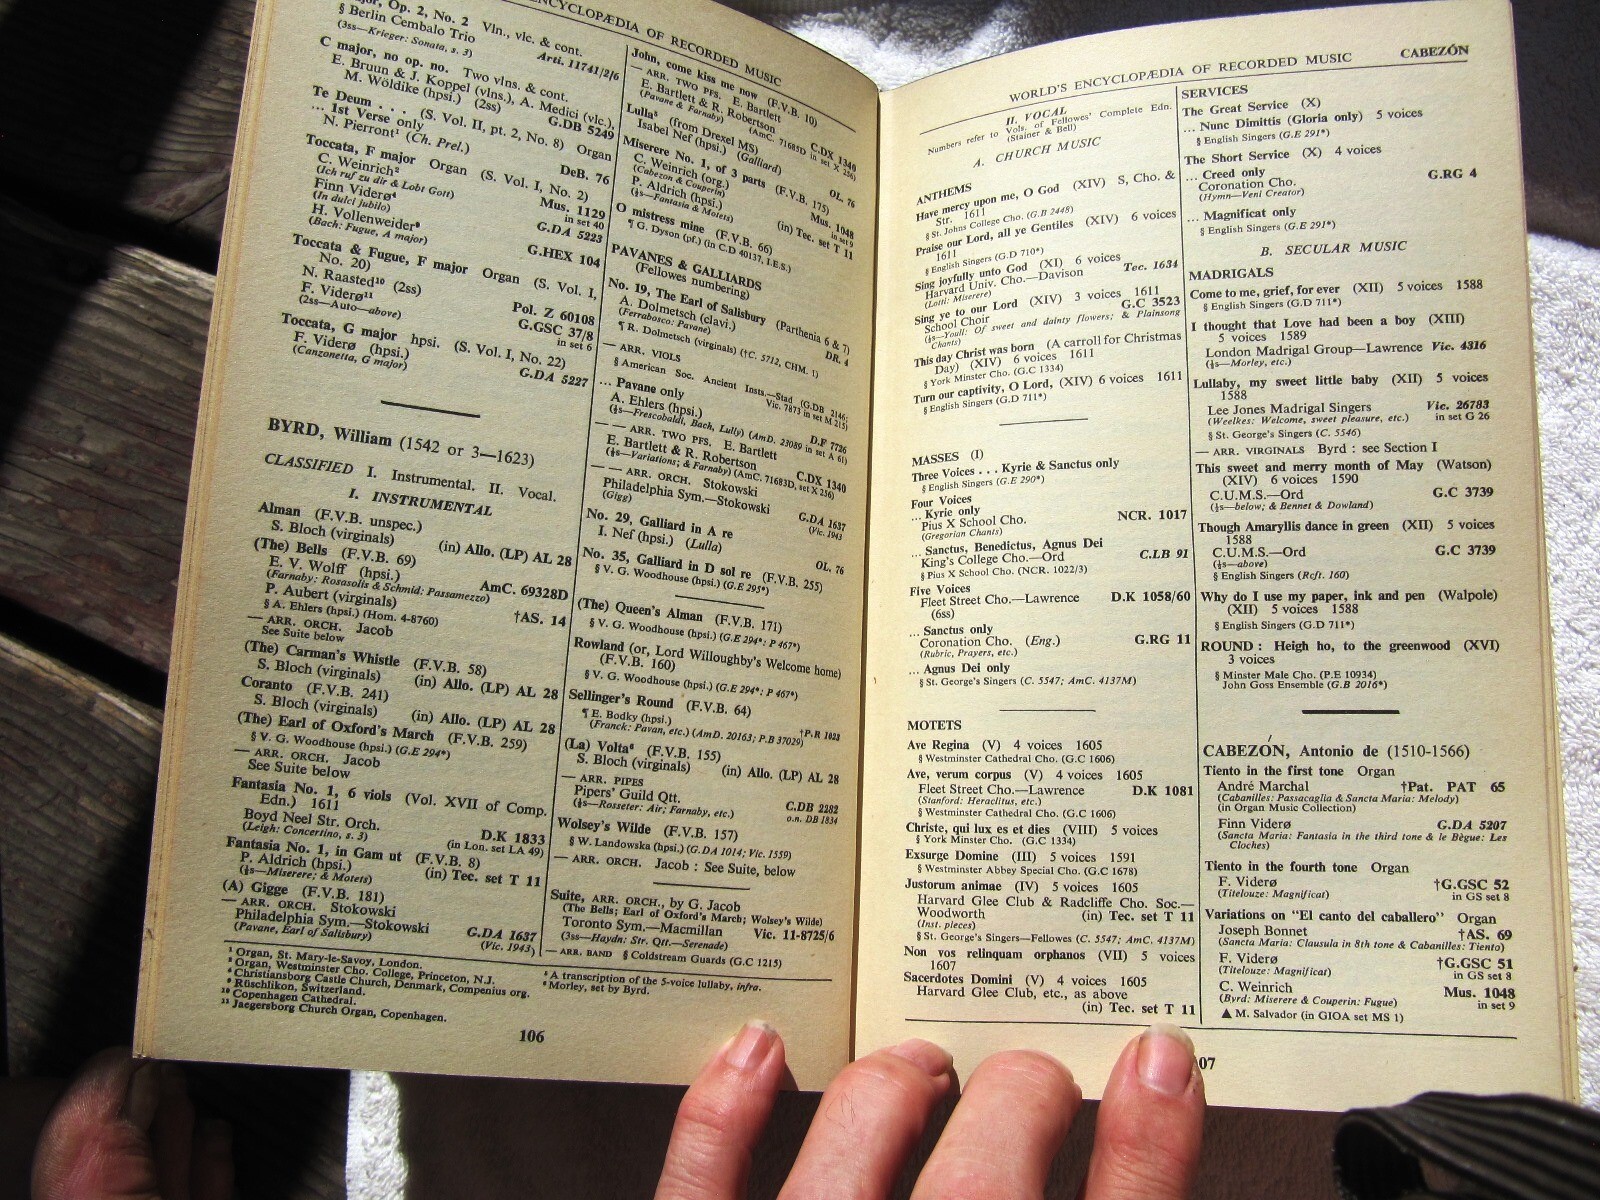 ENCYCLOPÆDIA OF RECORDED MUSIC
Op. 2, No. 2 Vln., vlc. & cont.
§ Berlin Cembalo Trio
(3ss—Krieger: Sonata, s. 3) Arti. 11741/2/6
C major, no op. no. Two vlns. & cont.
E. Bruun & J. Koppel (vlns.), A. Medici (vlc.),
M. Wöldike (hpsi.) (2ss) G.DB 5249
Te Deum . . . (S. Vol. II, pt. 2, No. 8) Organ
... 1st Verse only
N. Pierront¹ (Ch. Prel.) DeB. 76
Toccata, F major Organ (S. Vol. I, No. 2)
C. Weinrich² Mus. 1129
(Ich ruf zu dir & Lobt Gott) in set 40
Finn Viderø⁴ G.DA 5223
(In dulci jubilo)
H. Vollenweider⁸ G.HEX 104
(Bach: Fugue, A major)
Toccata & Fugue, F major Organ (S. Vol. I,
No. 20)
N. Raasted¹⁰ (2ss) Pol. Z 60108
F. Viderø¹¹ G.GSC 37/8
(2ss—Auto—above) in set 6
Toccata, G major hpsi. (S. Vol. I, No. 22)
F. Viderø (hpsi.) G.DA 5227
(Canzonetta, G major)
BYRD, William (1542 or 3—1623)
CLASSIFIED I. Instrumental. II. Vocal.
I. INSTRUMENTAL
Alman (F.V.B. unspec.)
S. Bloch (virginals) (in) Allo. (LP) AL 28
(The) Bells (F.V.B. 69)
E. V. Wolff (hpsi.) AmC. 69328D
(Farnaby: Rosasolis & Schmid: Passamezzo)
P. Aubert (virginals) †AS. 14
§ A. Ehlers (hpsi.) (Hom. 4-8760)
— ARR. ORCH. Jacob
See Suite below
(The) Carman's Whistle (F.V.B. 58)
S. Bloch (virginals) (in) Allo. (LP) AL 28
Coranto (F.V.B. 241)
S. Bloch (virginals) (in) Allo. (LP) AL 28
(The) Earl of Oxford's March (F.V.B. 259)
§ V. G. Woodhouse (hpsi.) (G.E 294*)
— ARR. ORCH. Jacob
See Suite below
Fantasia No. 1, 6 viols (Vol. XVII of Comp.
Edn.) 1611
Boyd Neel Str. Orch. D.K 1833
(Leigh: Concertino, s. 3) (in Lon. set LA 49)
Fantasia No. 1, in Gam ut (F.V.B. 8)
P. Aldrich (hpsi.) (in) Tec. set T 11
(½s—Miserere; & Motets)
(A) Gigge (F.V.B. 181)
— ARR. ORCH. Stokowski
Philadelphia Sym.—Stokowski G.DA 1637
(Pavane, Earl of Salisbury) (Vic. 1943)
John, come kiss me now (F.V.B. 10)
— ARR. TWO PFS. E. Bartlett
E. Bartlett & R. Robertson C.DX 1340
(Pavane & Farnaby) (AmC. 71685D in set X 256)
Lulla⁵ (from Drexel MS)
Isabel Nef (hpsi.) (Galliard) OL. 76
Miserere No. 1, of 3 parts (F.V.B. 175)
C. Weinrich (org.) Mus. 1048
(Cabezon & Couperin) in set 9
P. Aldrich (hpsi.) (in) Tec. set T 11
(½s—Fantasia & Motets)
O mistress mine (F.V.B. 66)
¶ G. Dyson (pf.) (in C.D 40137, I.E.S.)
PAVANES & GALLIARDS
(Fellowes numbering)
No. 19, The Earl of Salisbury (Parthenia 6 & 7)
A. Dolmetsch (clavi.) DR. 4
(Ferrabosco: Pavane)
¶ R. Dolmetsch (virginals) (†C. 5712, CHM. 1)
— ARR. VIOLS
§ American Soc. Ancient Insts.—Stad (G.DB 2146;
Vic. 7873 in set M 215)
... Pavane only
A. Ehlers (hpsi.) D.F 7726
(½s—Frescobaldi, Bach, Lully) (AmD. 23089 in set A 61)
— — ARR. TWO PFS. E. Bartlett
E. Bartlett & R. Robertson C.DX 1340
(½s—Variations; & Farnaby) (AmC. 71683D, set X 256)
— — ARR. ORCH. Stokowski
Philadelphia Sym.—Stokowski G.DA 1637
(Gigg) (Vic. 1943
No. 29, Galliard in A re
I. Nef (hpsi.) (Lulla) OL. 76
No. 35, Galliard in D sol re (F.V.B. 255)
§ V. G. Woodhouse (hpsi.) (G.E 295*)
(The) Queen's Alman (F.V.B. 171)
§ V. G. Woodhouse (hpsi.) (G.E 294*: P 467*)
Rowland (or, Lord Willoughby's Welcome home)
(F.V.B. 160)
§ V. G. Woodhouse (hpsi.) (G.E 294*: P 467*)
Sellinger's Round (F.V.B. 64)
¶ E. Bodky (hpsi.) †P.R 1023
(Franck: Pavan, etc.) (AmD. 20163; P.B 37029)
(La) Volta⁶ (F.V.B. 155)
S. Bloch (virginals) (in) Allo. (LP) AL 28
— ARR. PIPES
Pipers' Guild Qtt. C.DB 2282
(½s—Rosseter: Air; Farnaby, etc.) o.n. DB 1834
Wolsey's Wilde (F.V.B. 157)
§ W. Landowska (hpsi.) (G.DA 1014; Vic. 1559)
— ARR. ORCH. Jacob : See Suite, below
Suite, ARR. ORCH., by G. Jacob
(The Bells; Earl of Oxford's March; Wolsey's Wilde)
Toronto Sym.—Macmillan Vic. 11-8725/6
(3ss—Haydn: Str. Qtt.—Serenade)
— ARR. BAND § Coldstream Guards (G.C 1215)
¹ Organ, St. Mary-le-Savoy, London.
² Organ, Westminster Cho. College, Princeton, N.J.
⁴ Christiansborg Castle Church, Denmark, Compenius org.
⁸ Rüschlikon, Switzerland.
¹⁰ Copenhagen Cathedral.
¹¹ Jaegersborg Church Organ, Copenhagen.
⁵ A transcription of the 5-voice lullaby, infra.
⁶ Morley, set by Byrd.
106
WORLD'S ENCYCLOPÆDIA OF RECORDED MUSIC CABEZÓN
II. VOCAL
Numbers refer to Vols. of Fellowes' Complete Edn.
(Stainer & Bell)
A. CHURCH MUSIC
ANTHEMS
Have mercy upon me, O God (XIV) S, Cho. &
Str. 1611
§ St. Johns College Cho. (G.B 2448)
Praise our Lord, all ye Gentiles (XIV) 6 voices
1611
§ English Singers (G.D 710*)
Sing joyfully unto God (XI) 6 voices
Harvard Univ. Cho.—Davison Tec. 1634
(Lotti: Miserere)
Sing ye to our Lord (XIV) 3 voices 1611
School Choir G.C 3523
(½s—Youll: Of sweet and dainty flowers; & Plainsong
Chants)
This day Christ was born (A carroll for Christmas
Day) (XIV) 6 voices 1611
§ York Minster Cho. (G.C 1334)
Turn our captivity, O Lord, (XIV) 6 voices 1611
§ English Singers (G.D 711*)
MASSES (I)
Three Voices . . . Kyrie & Sanctus only
§ English Singers (G.E 290*)
Four Voices
... Kyrie only
Pius X School Cho. NCR. 1017
(Gregorian Chants)
... Sanctus, Benedictus, Agnus Dei
King's College Cho.—Ord C.LB 91
§ Pius X School Cho. (NCR. 1022/3)
Five Voices
Fleet Street Cho.—Lawrence D.K 1058/60
(6ss)
... Sanctus only
Coronation Cho. (Eng.) G.RG 11
(Rubric, Prayers, etc.)
... Agnus Dei only
§ St. George's Singers (C. 5547; AmC. 4137M)
MOTETS
Ave Regina (V) 4 voices 1605
§ Westminster Cathedral Cho. (G.C 1606)
Ave, verum corpus (V) 4 voices 1605
Fleet Street Cho.—Lawrence D.K 1081
(Stanford: Heraclitus, etc.)
§ Westminster Cathedral Cho. (G.C 1606)
Christe, qui lux es et dies (VIII) 5 voices
§ York Minster Cho. (G.C 1334)
Exsurge Domine (III) 5 voices 1591
§ Westminster Abbey Special Cho. (G.C 1678)
Justorum animae (IV) 5 voices 1605
Harvard Glee Club & Radcliffe Cho. Soc.—
Woodworth (in) Tec. set T 11
(Inst. pieces)
§ St. George's Singers—Fellowes (C. 5547; AmC. 4137M)
Non vos relinquam orphanos (VII) 5 voices
1607
Sacerdotes Domini (V) 4 voices 1605
Harvard Glee Club, etc., as above
(in) Tec. set T 11
SERVICES
The Great Service (X)
... Nunc Dimittis (Gloria only) 5 voices
§ English Singers (G.E 291*)
The Short Service (X) 4 voices
... Creed only
Coronation Cho. G.RG 4
(Hymn—Veni Creator)
... Magnificat only
§ English Singers (G.E 291*)
B. SECULAR MUSIC
MADRIGALS
Come to me, grief, for ever (XII) 5 voices 1588
§ English Singers (G.D 711*)
I thought that Love had been a boy (XIII)
5 voices 1589
London Madrigal Group—Lawrence Vic. 4316
(½s—Morley, etc.)
Lullaby, my sweet little baby (XII) 5 voices
1588
Lee Jones Madrigal Singers Vic. 26783
(Weelkes: Welcome, sweet pleasure, etc.) in set G 26
§ St. George's Singers (C. 5546)
— ARR. VIRGINALS Byrd : see Section I
This sweet and merry month of May (Watson)
(XIV) 6 voices 1590
C.U.M.S.—Ord G.C 3739
(½s—below; & Bennet & Dowland)
Though Amaryllis dance in green (XII) 5 voices
1588
C.U.M.S.—Ord G.C 3739
(½s—above)
§ English Singers (Rcft. 160)
Why do I use my paper, ink and pen (Walpole)
(XII) 5 voices 1588
§ English Singers (G.D 711*)
ROUND : Heigh ho, to the greenwood (XVI)
3 voices
§ Minster Male Cho. (P.E 10934)
John Goss Ensemble (G.B 2016*)
CABEZÓN, Antonio de (1510-1566)
Tiento in the first tone Organ
André Marchal †Pat. PAT 65
(Cabanilles: Passacaglia & Sancta Maria: Melody)
(in Organ Music Collection)
Finn Viderø G.DA 5207
(Sancta Maria: Fantasia in the third tone & le Bègue: Les
Cloches)
Tiento in the fourth tone Organ
F. Viderø †G.GSC 52
(Titelouze: Magnificat) in GS set 8
Variations on "El canto del caballero" Organ
Joseph Bonnet †AS. 69
(Sancta Maria: Clausula in 8th tone & Cabanilles: Tiento)
F. Viderø †G.GSC 51
(Titelouze: Magnificat) in GS set 8
C. Weinrich Mus. 1048
(Byrd: Miserere & Couperin: Fugue) in set 9
▲ M. Salvador (in GIOA set MS 1)
07